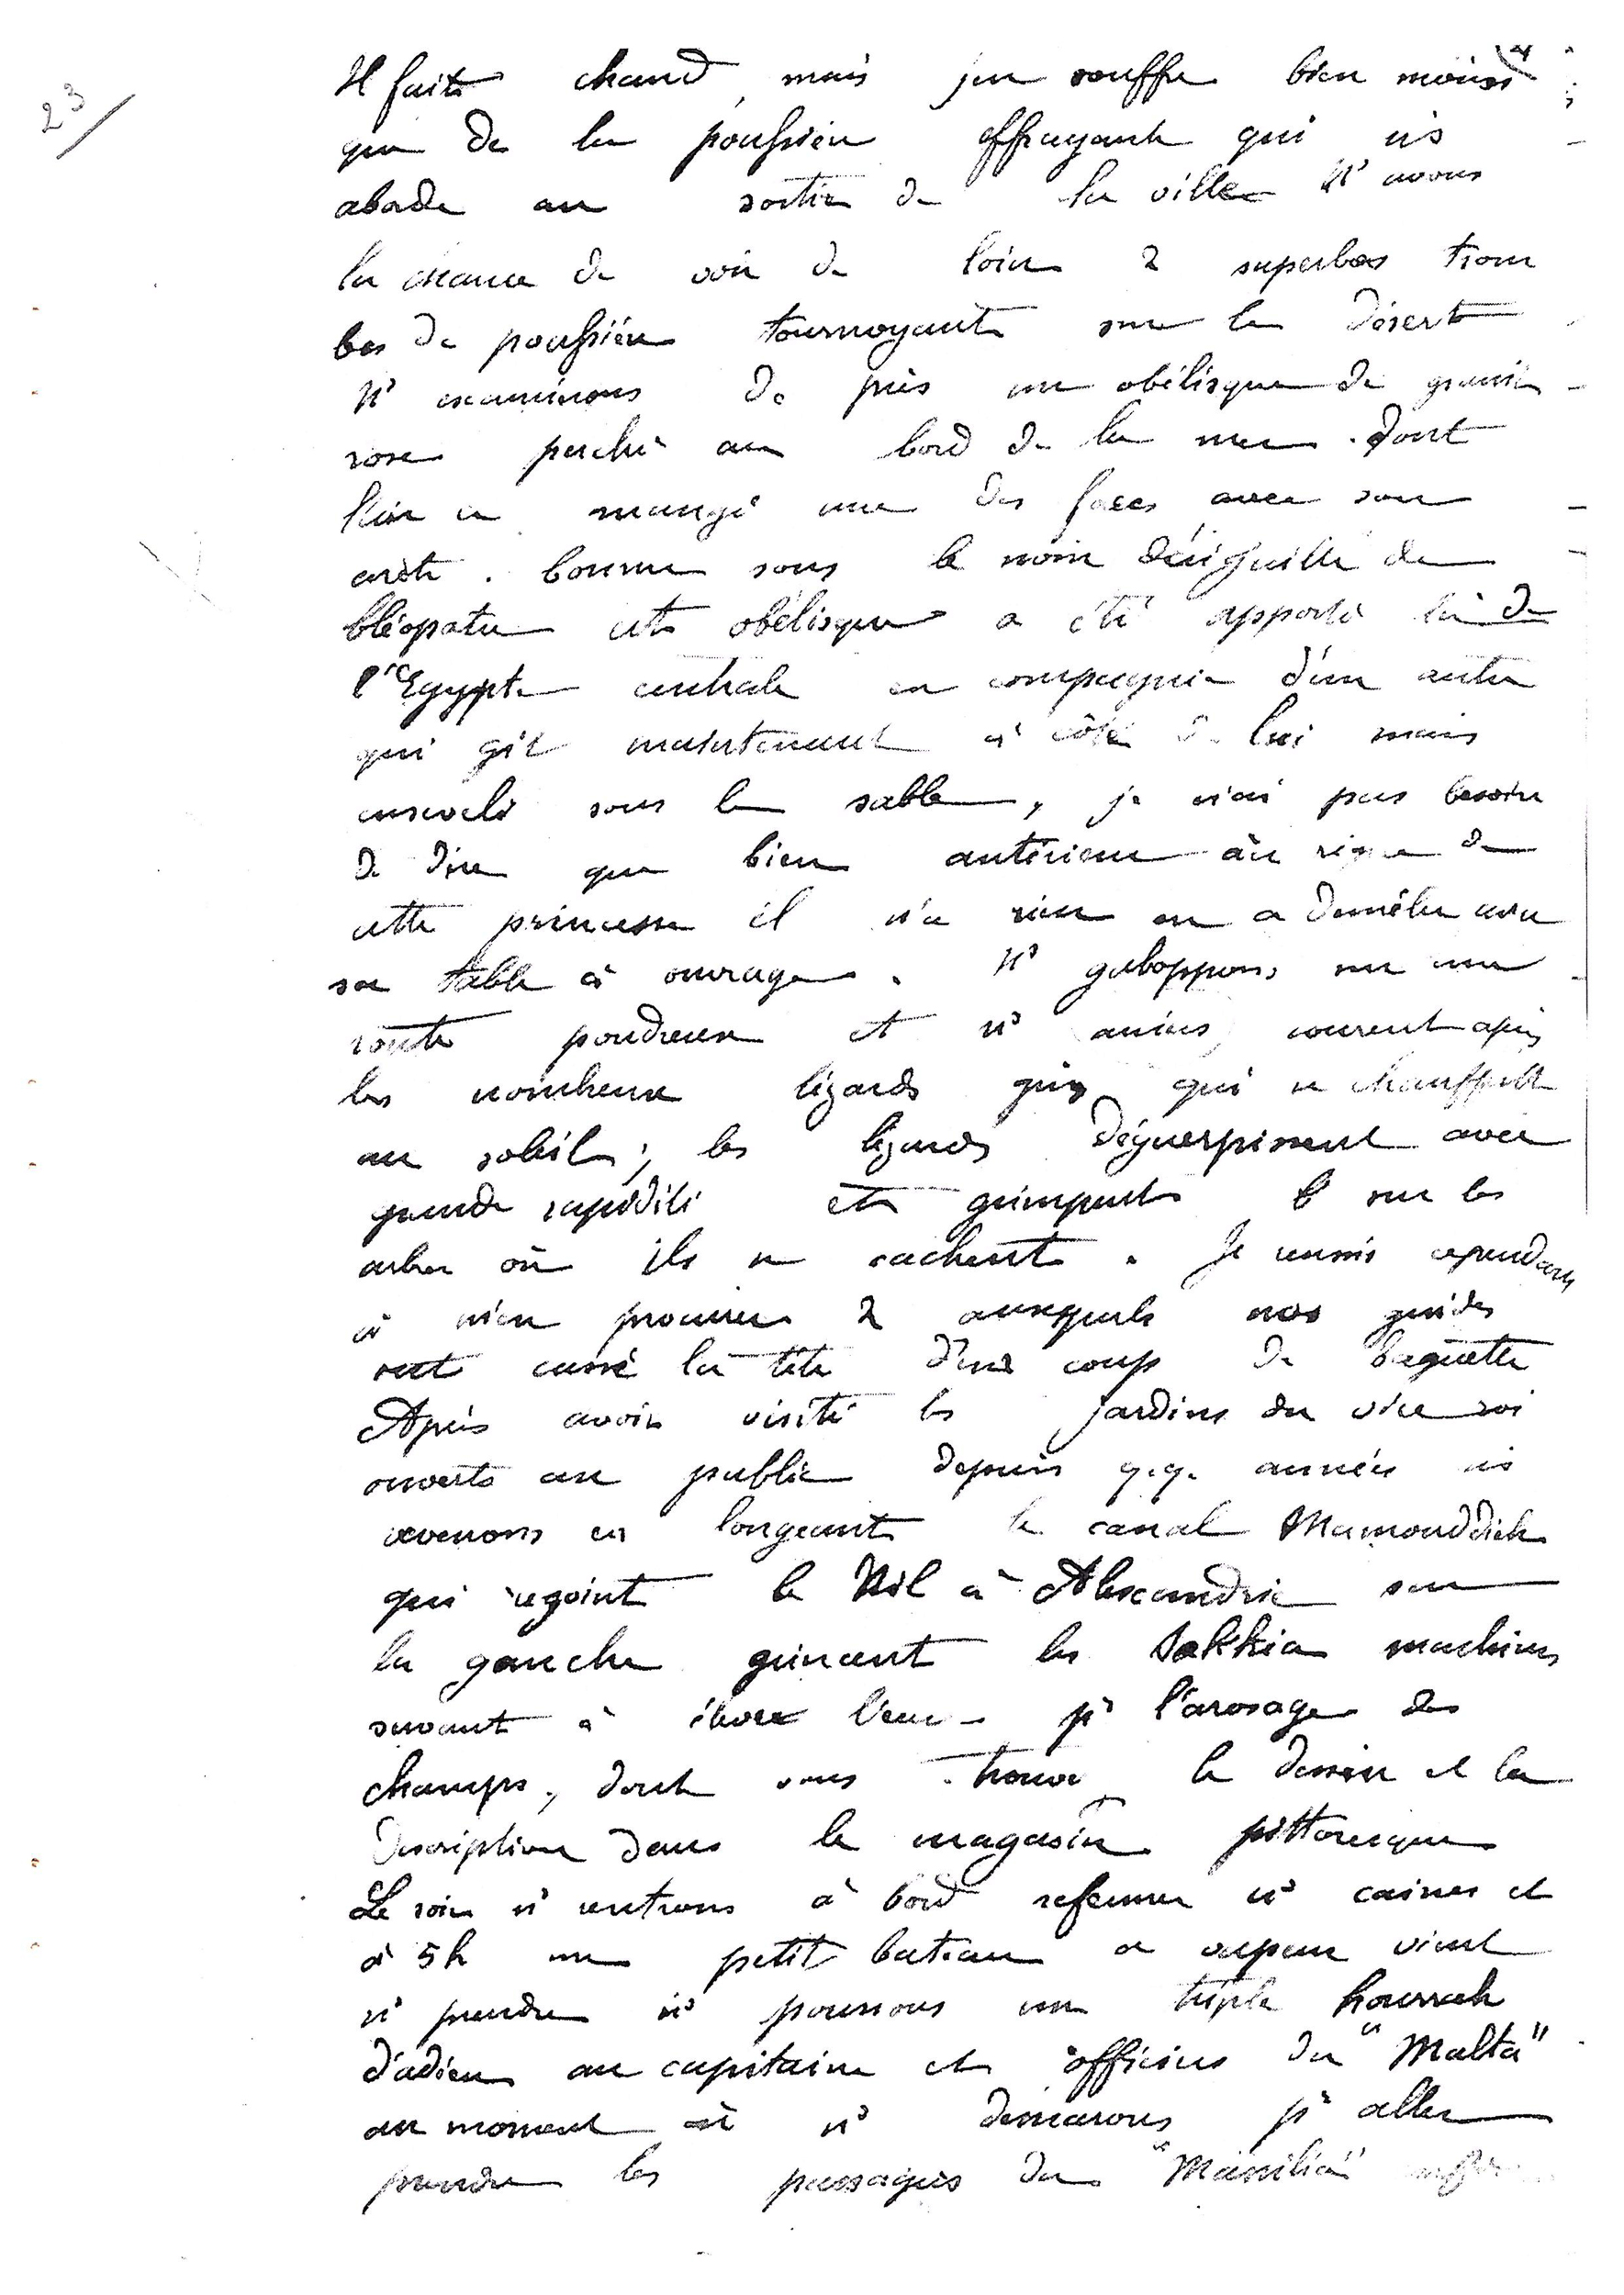 23/
4
Il fait chaud, mais j'en souffre bien moins
que de la poussière effrayante qui ns
aborde au sortir de la ville. Ns avons
la chance de voir de loin 2 superbes trom
bes de poussière tournoyant sur le désert
Ns examinons de près un obélisque de granit
rose perché au bord de la mer. dont
l'air a mangé une des faces avec son
arête. Connu sous le nom d'aiguille de
Cléopatre cet obélisque a été apporté là de
l'Egypte centrale en compagnie d'un autre
qui git maintenant à côté de lui mais
enseveli sous le sable, je n'ai pas besoin
de dire que bien antérieur au règne de
cette princesse il n'a rien eu a demêler avec
sa table à ouvrage. Ns galoppons sur une
route poudreuse et ns aniers courent après
les nombreux lézards gris qui se chauffent
au soleil; les lézards déguerpissent avec
grande rapidité et grimpent sur les
arbres où ils se cachent. Je réussis cependant
à m'en procurer 2 auxquels nos guides
ont cassé la tête d'un coup de baguette
Après avoir visité les jardins du vice roi
ouverts au public depuis q.q. années ns
revenons en longeant le canal Mamouddieh
qui rejoint le Nil à Alexandrie sur
la gauche grincent les Sakkia machines
servant à élever l'eau pr l'arosage des
champs, dont vous trouver le dessin et la
description dans le magasin pittoresque
Le soir ns rentrons à bord refermer ns caisses et
à 5h un petit bateau a vapeur vient
ns prendre ns poussons un triple hourrah
d'adieu au capitaine et officiers du "Malta"
au moment où ns démarons pr aller
prendre les passagers du "Massilia"